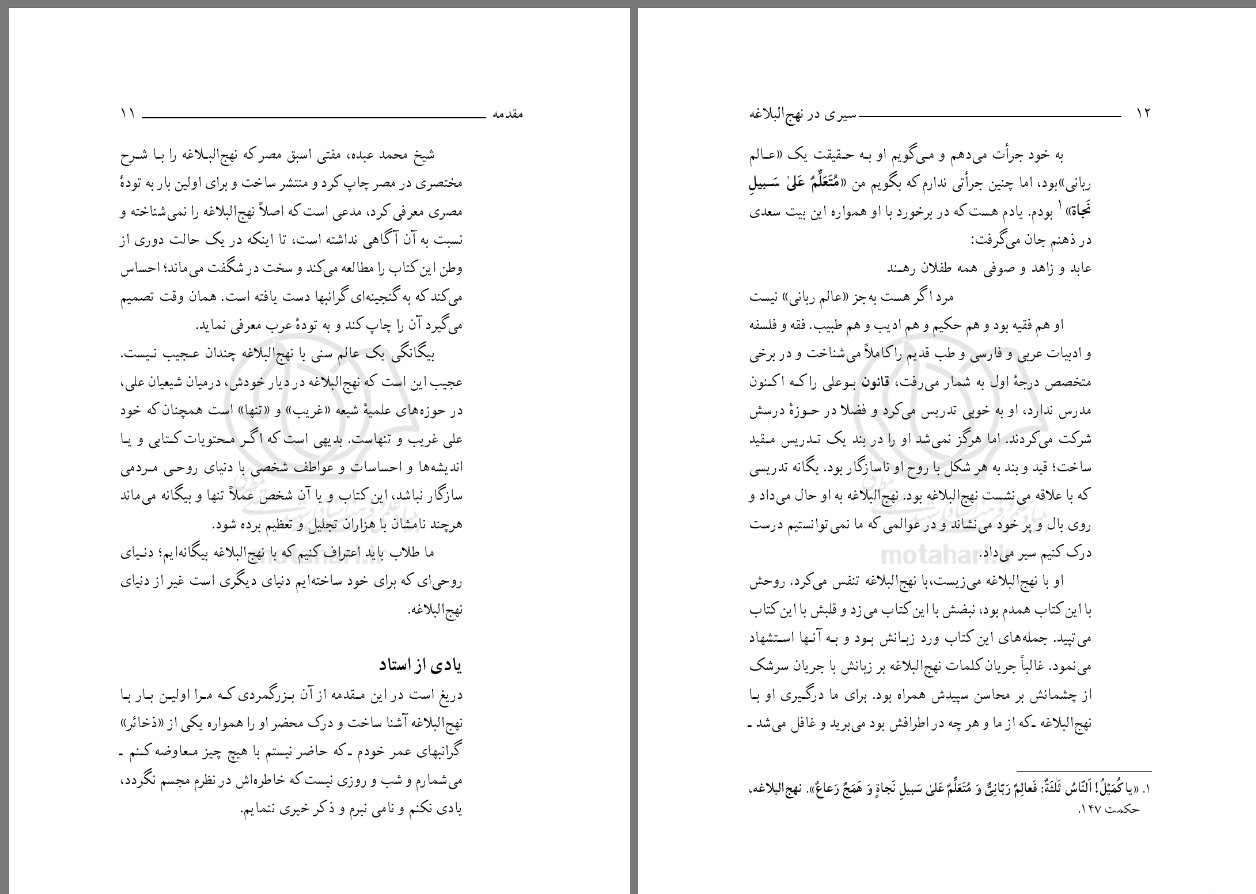 مقدمه ۱۱
شیخ محمد عبده، مفتی اسبق مصر که نهج‌البلاغه را با شرح
مختصری در مصر چاپ کرد و منتشر ساخت و برای اولین بار به تودهٔ
مصری معرفی کرد، مدعی است که اصلاً نهج‌البلاغه را نمی‌شناخته و
نسبت به آن آگاهی نداشته است، تا اینکه در یک حالت دوری از
وطن این کتاب را مطالعه می‌کند و سخت در شگفت می‌ماند؛ احساس
می‌کند که به گنجینه‌ای گرانبها دست یافته است. همان وقت تصمیم
می‌گیرد آن را چاپ کند و به تودهٔ عرب معرفی نماید.
بیگانگی یک عالم سنی با نهج‌البلاغه چندان عجیب نیست.
عجیب این است که نهج‌البلاغه در دیار خودش، درمیان شیعیان علی،
در حوزه‌های علمیهٔ شیعه «غریب» و «تنها» است همچنان که خود
علی غریب و تنهاست. بدیهی است که اگر محتویات کتابی و یا
اندیشه‌ها و احساسات و عواطف شخصی با دنیای روحی مردمی
سازگار نباشد، این کتاب و یا آن شخص عملاً تنها و بیگانه می‌ماند
هرچند نامشان با هزاران تجلیل و تعظیم برده شود.
ما طلاب باید اعتراف کنیم که با نهج‌البلاغه بیگانه‌ایم؛ دنیای
روحی‌ای که برای خود ساخته‌ایم دنیای دیگری است غیر از دنیای
نهج‌البلاغه.
یادی از استاد
دریغ است در این مقدمه از آن بزرگمردی که مرا اولین بار با
نهج‌البلاغه آشنا ساخت و درک محضر او را همواره یکی از «ذخائر»
گرانبهای عمر خودم ـ که حاضر نیستم با هیچ چیز معاوضه کنم ـ
می‌شمارم و شب و روزی نیست که خاطره‌اش در نظرم مجسم نگردد،
یادی نکنم و نامی نبرم و ذکر خیری ننمایم.
motahari.ir
۱۲ سیری در نهج‌البلاغه
به خود جرأت می‌دهم و می‌گویم او به حقیقت یک «عالم
ربانی»بود، اما چنین جرأتی ندارم که بگویم من «مُتَعَلِّمٌ عَلیٰ سَبیلِ
نَجاة»۱ بودم. یادم هست که در برخورد با او همواره این بیت سعدی
در ذهنم جان می‌گرفت:
عابد و زاهد و صوفی همه طفلان رهند
مرد اگر هست به‌جز «عالم ربانی» نیست
او هم فقیه بود و هم حکیم و هم ادیب و هم طبیب. فقه و فلسفه
و ادبیات عربی و فارسی و طب قدیم را کاملاً می‌شناخت و در برخی
متخصص درجهٔ اول به شمار می‌رفت، قانون بوعلی را که اکنون
مدرس ندارد، او به خوبی تدریس می‌کرد و فضلا در حوزهٔ درسش
شرکت می‌کردند. اما هرگز نمی‌شد او را در بند یک تدریس مقید
ساخت؛ قید و بند به هر شکل با روح او ناسازگار بود. یگانه تدریسی
که با علاقه می‌نشست نهج‌البلاغه بود. نهج‌البلاغه به او حال می‌داد و
روی بال و پر خود می‌نشاند و در عوالمی که ما نمی‌توانستیم درست
درک کنیم سیر می‌داد.
او با نهج‌البلاغه می‌زیست،با نهج‌البلاغه تنفس می‌کرد. روحش
با این کتاب همدم بود، نبضش با این کتاب می‌زد و قلبش با این کتاب
می‌تپید. جمله‌های این کتاب ورد زبانش بود و به آنها استشهاد
می‌نمود. غالباً جریان کلمات نهج‌البلاغه بر زبانش با جریان سرشک
از چشمانش بر محاسن سپیدش همراه بود. برای ما درگیری او با
نهج‌البلاغه ـ که از ما و هر چه در اطرافش بود می‌برید و غافل می‌شد ـ
۱. «یا کُمَیْلُ! اَلنّاسُ ثَلٰثَةٌ: فَعالِمٌ رَبّانِیٌّ وَ مُتَعَلِّمٌ عَلیٰ سَبیلِ نَجاةٍ وَ هَمَجٌ رَعاعٌ». نهج‌البلاغه،
حکمت ۱۴۷.
motahari.ir